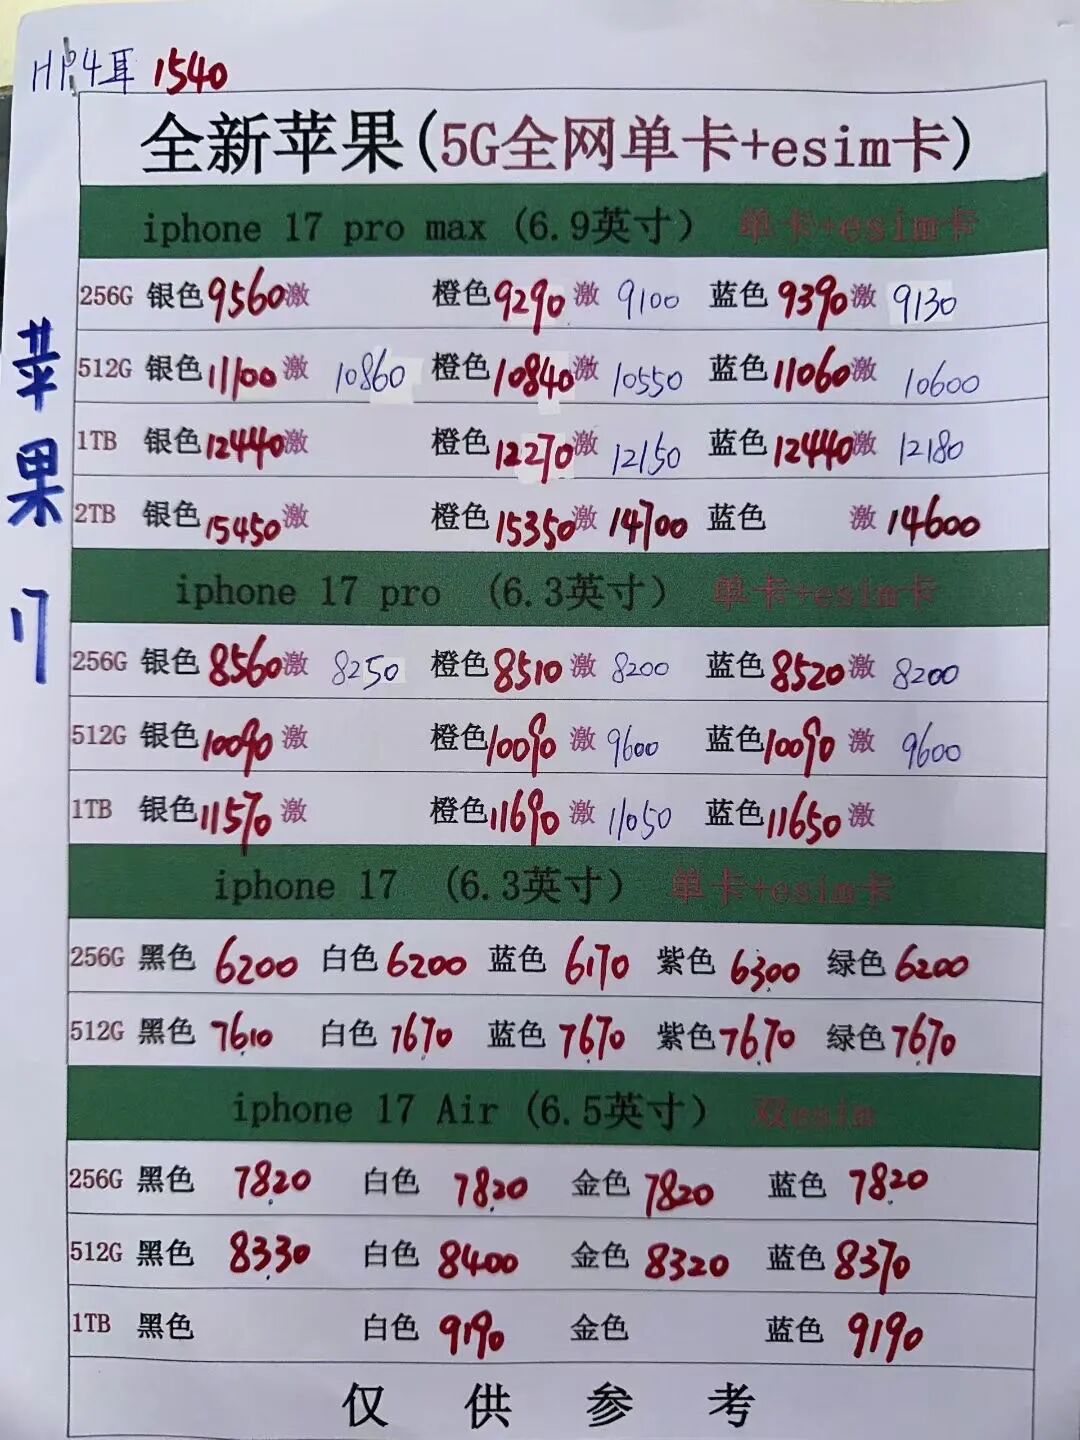 HP4耳 1540
全新苹果(5G全网单卡+esim卡)
iphone 17 pro max (6.9英寸) 单卡+esim卡
256G 银色 9560 激 橙色 9290 激 9100 蓝色 9390 激 9130
512G 银色 11100 激 10860 橙色 10840 激 10550 蓝色 11060 激 10600
1TB 银色 12440 激 橙色 12270 激 12150 蓝色 12440 激 12180
2TB 银色 15450 激 橙色 15350 激 14700 蓝色 激 14600
iphone 17 pro (6.3英寸) 单卡+esim卡
256G 银色 8560 激 8250 橙色 8510 激 8200 蓝色 8520 激 8200
512G 银色 10090 激 橙色 10090 激 9600 蓝色 10090 激 9600
1TB 银色 11570 激 橙色 11690 激 11050 蓝色 11650 激
iphone 17 (6.3英寸) 单卡+esim卡
256G 黑色 6200 白色 6200 蓝色 6170 紫色 6300 绿色 6200
512G 黑色 7610 白色 7670 蓝色 7670 紫色 7670 绿色 7670
iphone 17 Air (6.5英寸) 双esim
256G 黑色 7820 白色 7820 金色 7820 蓝色 7820
512G 黑色 8330 白色 8400 金色 8320 蓝色 8370
1TB 黑色 白色 9190 金色 蓝色 9190
仅供参考
苹果